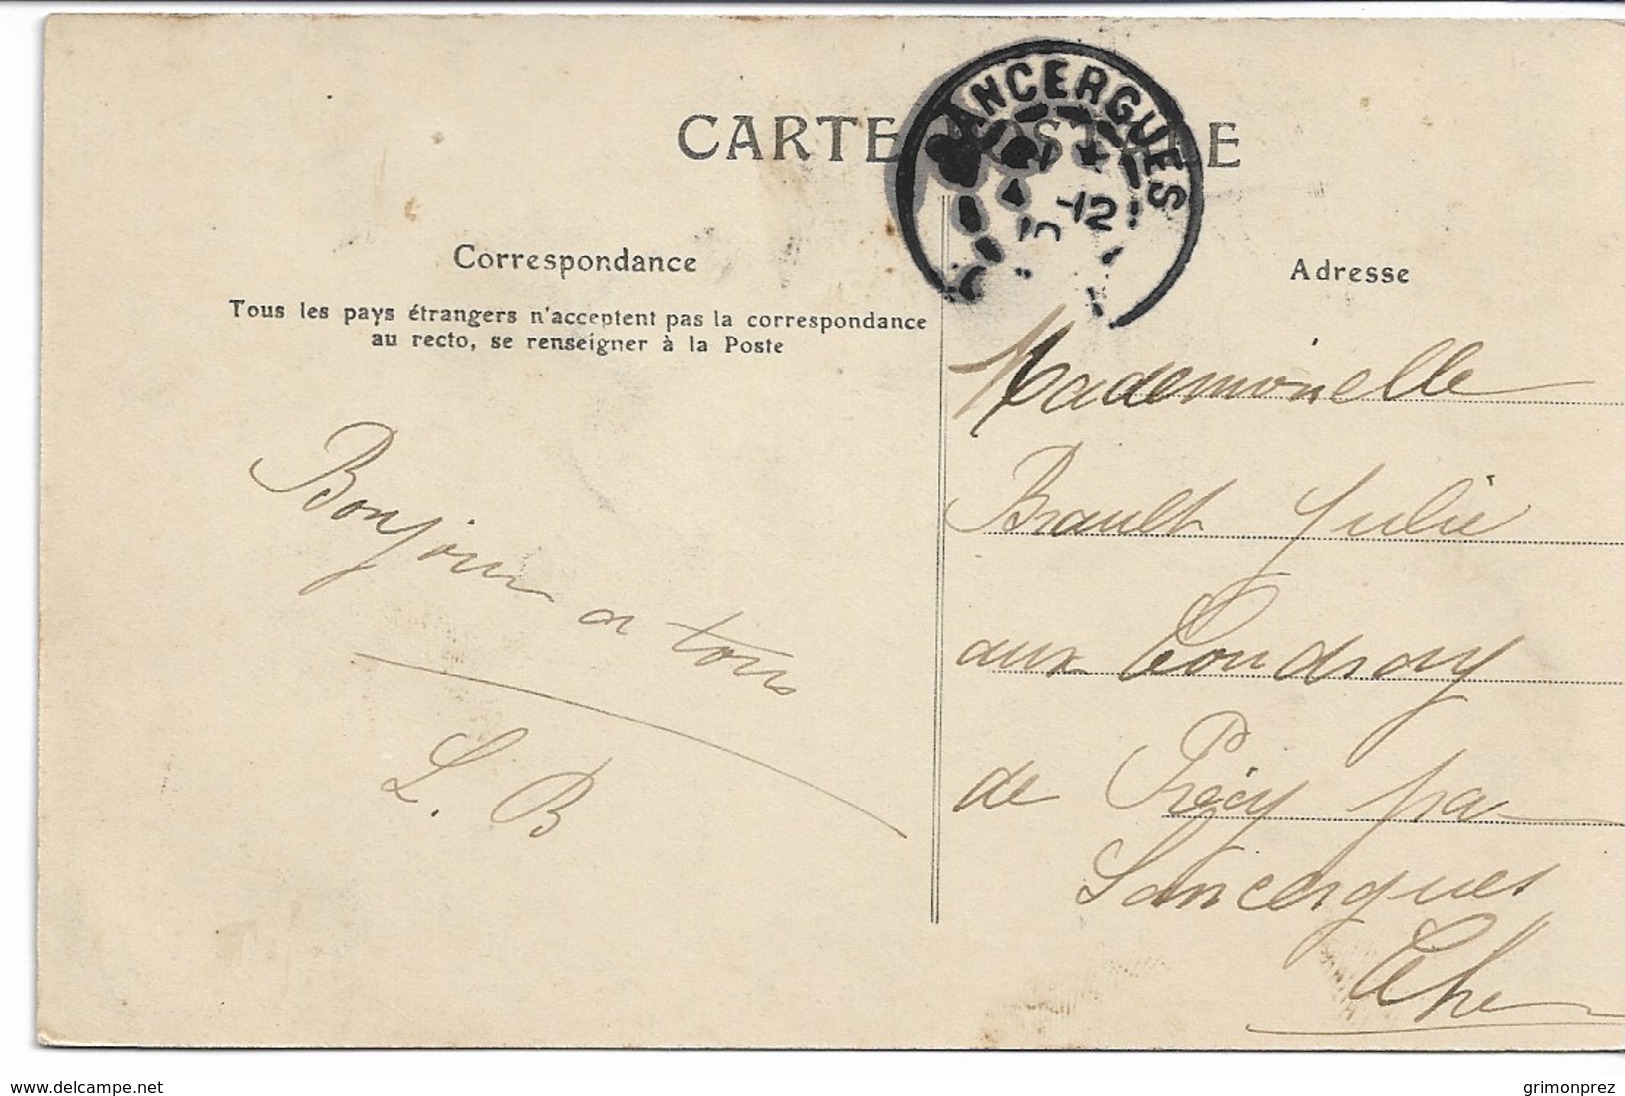 CARTE POSTALE
SANCERGUES
-12
10
Correspondance
Tous les pays étrangers n'acceptent pas la correspondance
au recto, se renseigner à la Poste
Bonjour a tous
L. B
Adresse
Mademoiselle
Brault Julie
aux Coudray
de Précy par
Sancergues
Cher
www.delcampe.net
grimonprez